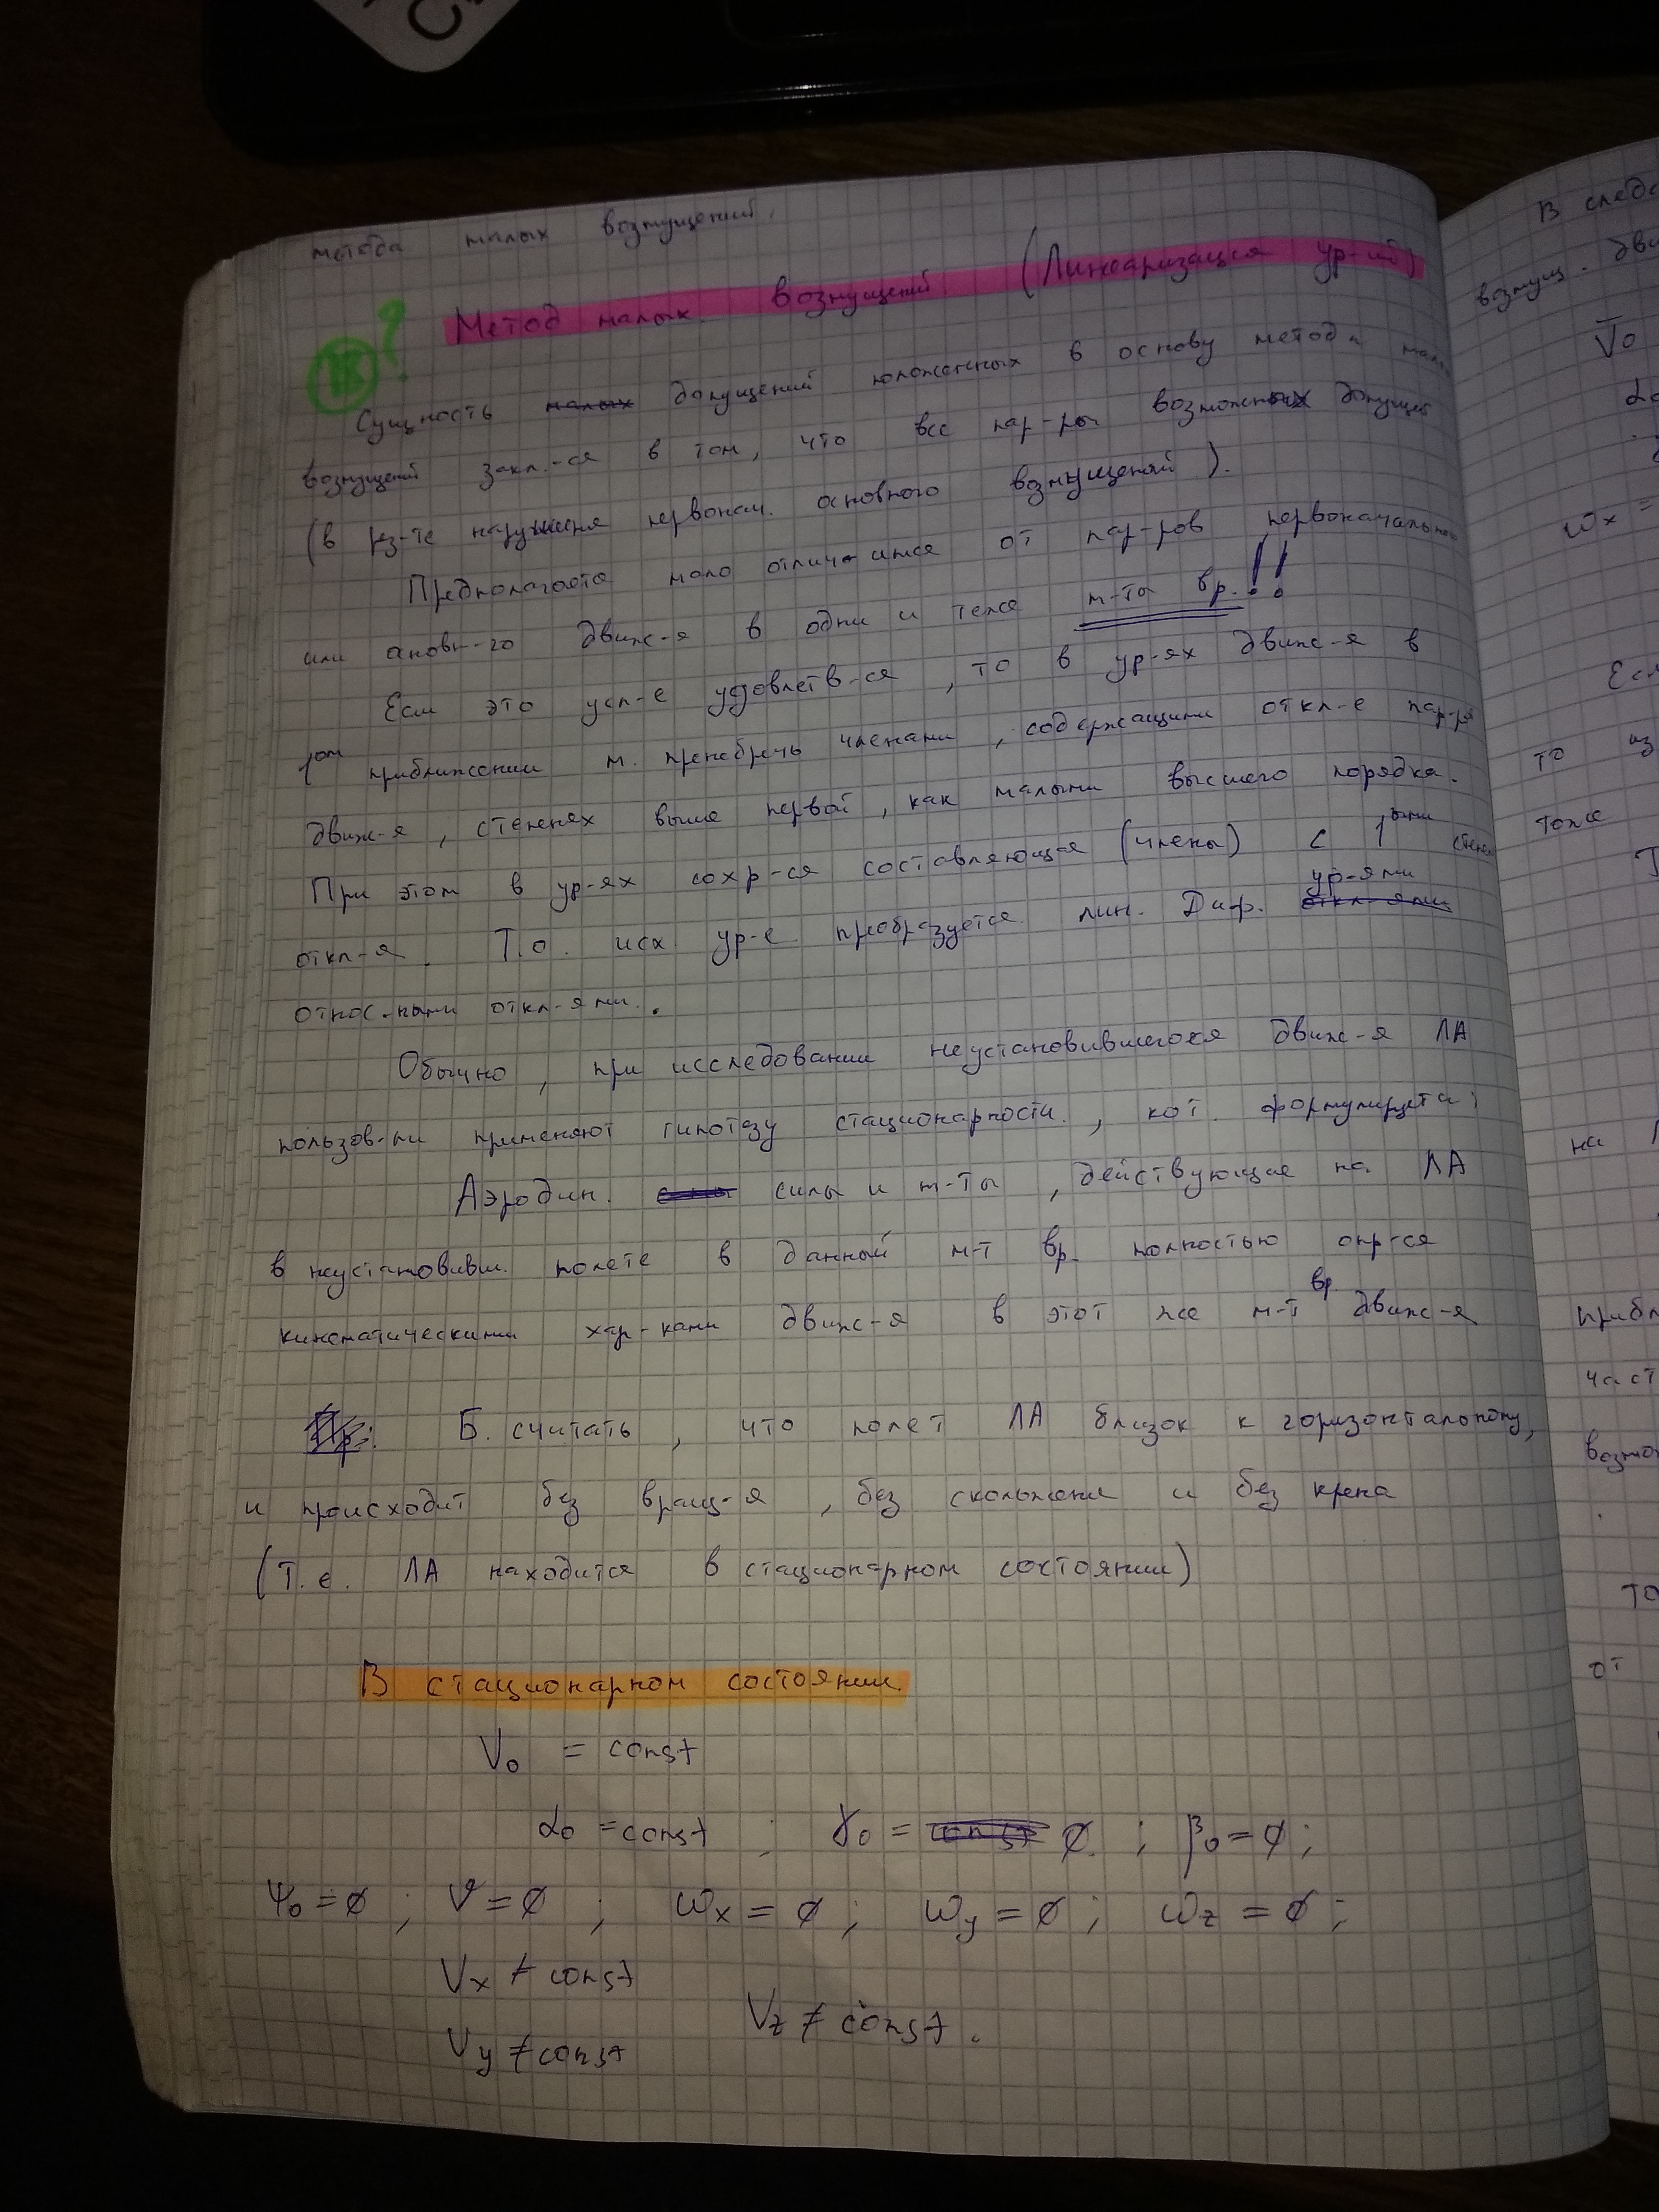 метода малых возмущений.
1К ?
Метод малых возмущений (Линеаризация ур-ий)
Сущность малых допущений положенных в основу метода мал
возмущений закл.-ся в том, что все пар-ры возможных допущ
(в рез-те нарушения первонач. основного возмущений).
Предполагается мало отличаются от пар-ров первоначального
или основн-го движ-я в одни и теже м-ты вр.!!
Если это усл-е удовлетв-ся, то в ур-ях движ-я в
1ом приближении м. пренебречь членами, содержащими откл-е пар-ра
движ-я, степенях выше первой, как малыми высшего порядка.
При этом в ур-ях сохр-ся составляющие (члены) с 1ыми степен
откл-я. Т.о. исх ур-е преобразуется лин. Диф. откл-ями ур-ями
относ-ными откл-ями.
Обычно, при исследовании неустановившегося движ-я ЛА
пользов-ли применяют гипотезу стационарности, кот. формулируется:
Аэродин. силы и м-ты, действующие на ЛА
в неустановивш. полете в данный м-т вр. полностью опр-ся
кинематическими хар-ками движ-я в этот же м-т вр. движ-я
Б. считать, что полет ЛА близок к горизонтальному,
и происходит без вращ-я, без скольжения и без крена
(Т.е. ЛА находится в стационарном состоянии)
В стационарном состоянии.
V₀ = const
α₀ = const ; γ₀ = const 0 ; β₀ = 0 ;
ψ₀ = 0 ; ϑ = 0 ; ωx = 0 ; ωy = 0 ; ωz = 0 ;
Vx ≠ const
Vz ≠ const.
Vy ≠ const
В следс
возмущ. дви
V̄₀
α₀
ωx =
Есл
то из
тоже
на
прибл
част
возмо
то
от